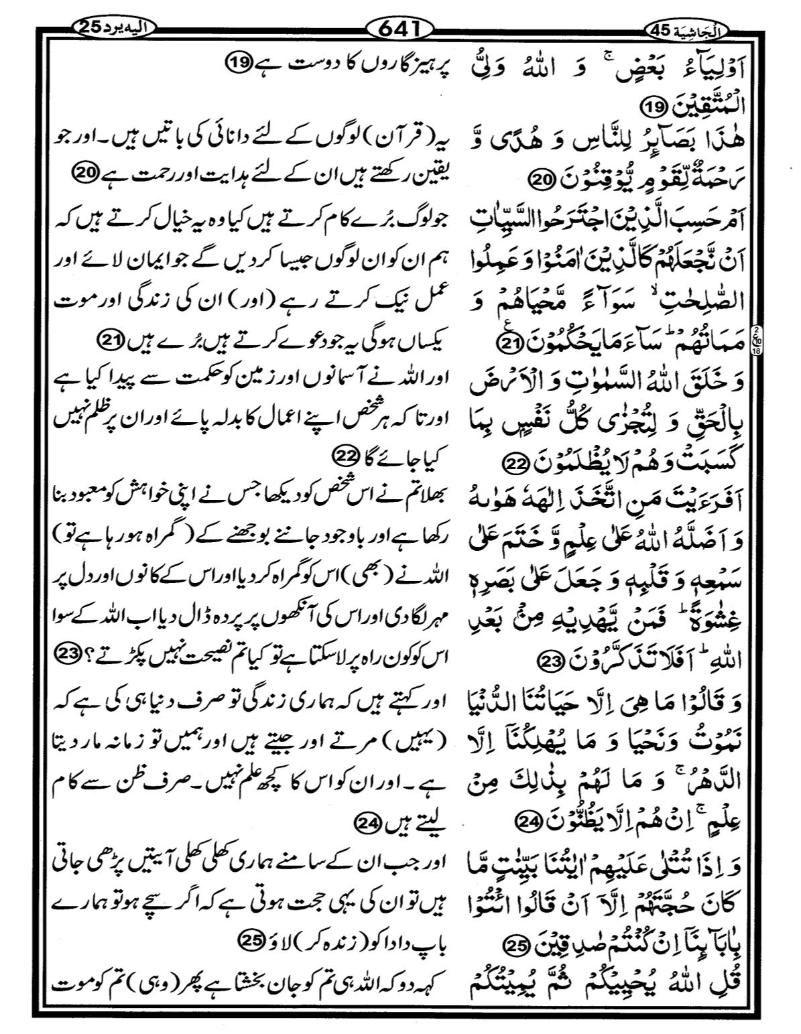 اَلْجَاثِيَة 45
641
اليه يرد 25
اَوْلِيَآءُ بَعْضٍ ۚ وَ اللّٰهُ وَلِيُّ
الْمُتَّقِيْنَ 19
هٰذَا بَصَآىِٕرُ لِلنَّاسِ وَ هُدًى وَّ
رَحْمَةٌ لِّقَوْمٍ يُّوْقِنُوْنَ 20
اَمْ حَسِبَ الَّذِيْنَ اجْتَرَحُوا السَّيِّاٰتِ
اَنْ نَّجْعَلَهُمْ كَالَّذِيْنَ اٰمَنُوْا وَ عَمِلُوا
الصّٰلِحٰتِ ۙ سَوَآءً مَّحْيَاهُمْ وَ
مَمَاتُهُمْ ؕ سَآءَ مَا يَحْكُمُوْنَ 21
وَ خَلَقَ اللّٰهُ السَّمٰوٰتِ وَ الْاَرْضَ
بِالْحَقِّ وَ لِتُجْزٰى كُلُّ نَفْسٍۭ بِمَا
كَسَبَتْ وَ هُمْ لَا يُظْلَمُوْنَ 22
اَفَرَءَيْتَ مَنِ اتَّخَذَ اِلٰهَهٗ هَوٰىهُ
وَ اَضَلَّهُ اللّٰهُ عَلٰى عِلْمٍ وَّ خَتَمَ عَلٰى
سَمْعِهٖ وَ قَلْبِهٖ وَ جَعَلَ عَلٰى بَصَرِهٖ
غِشٰوَةً ؕ فَمَنْ يَّهْدِيْهِ مِنْۢ بَعْدِ
اللّٰهِ ؕ اَفَلَا تَذَكَّرُوْنَ 23
وَ قَالُوْا مَا هِيَ اِلَّا حَيَاتُنَا الدُّنْيَا
نَمُوْتُ وَ نَحْيَا وَ مَا يُهْلِكُنَاۤ اِلَّا
الدَّهْرُ ۚ وَ مَا لَهُمْ بِذٰلِكَ مِنْ
عِلْمٍ ۚ اِنْ هُمْ اِلَّا يَظُنُّوْنَ 24
وَ اِذَا تُتْلٰى عَلَيْهِمْ اٰيٰتُنَا بَيِّنٰتٍ مَّا
كَانَ حُجَّتَهُمْ اِلَّاۤ اَنْ قَالُوا ائْتُوْا
بِاٰبَآىِٕنَاۤ اِنْ كُنْتُمْ صٰدِقِيْنَ 25
قُلِ اللّٰهُ يُحْيِيْكُمْ ثُمَّ يُمِيْتُكُمْ
پرہیزگاروں کا دوست ہے 19
یہ (قرآن) لوگوں کے لئے دانائی کی باتیں ہیں۔ اور جو
یقین رکھتے ہیں ان کے لئے ہدایت اور رحمت ہے 20
جو لوگ بُرے کام کرتے ہیں کیا وہ یہ خیال کرتے ہیں کہ
ہم ان کو ان لوگوں جیسا کر دیں گے جو ایمان لائے اور
عمل نیک کرتے رہے (اور) ان کی زندگی اور موت
یکساں ہوگی یہ جو دعوے کرتے ہیں بُرے ہیں 21
اور اللہ نے آسمانوں اور زمین کو حکمت سے پیدا کیا ہے
اور تا کہ ہر شخص اپنے اعمال کا بدلہ پائے اور ان پر ظلم نہیں
کیا جائے گا 22
بھلا تم نے اس شخص کو دیکھا جس نے اپنی خواہش کو معبود بنا
رکھا ہے اور باوجود جاننے بوجھنے کے (گمراہ ہو رہا ہے تو)
اللہ نے (بھی) اس کو گمراہ کر دیا اور اس کے کانوں اور دل پر
مہر لگا دی اور اس کی آنکھوں پر پردہ ڈال دیا اب اللہ کے سوا
اس کو کون راہ پر لا سکتا ہے تو کیا تم نصیحت نہیں پکڑتے؟ 23
اور کہتے ہیں کہ ہماری زندگی تو صرف دنیا ہی کی ہے کہ
(یہیں) مرتے اور جیتے ہیں اور ہمیں تو زمانہ مار دیتا
ہے۔ اور ان کو اس کا کچھ علم نہیں۔ صرف ظن سے کام
لیتے ہیں 24
اور جب ان کے سامنے ہماری کھلی کھلی آیتیں پڑھی جاتی
ہیں تو ان کی یہی حجت ہوتی ہے کہ اگر سچے ہو تو ہمارے
باپ دادا کو (زندہ کر) لاؤ 25
کہہ دو کہ اللہ ہی تم کو جان بخشتا ہے پھر (وہی) تم کو موت